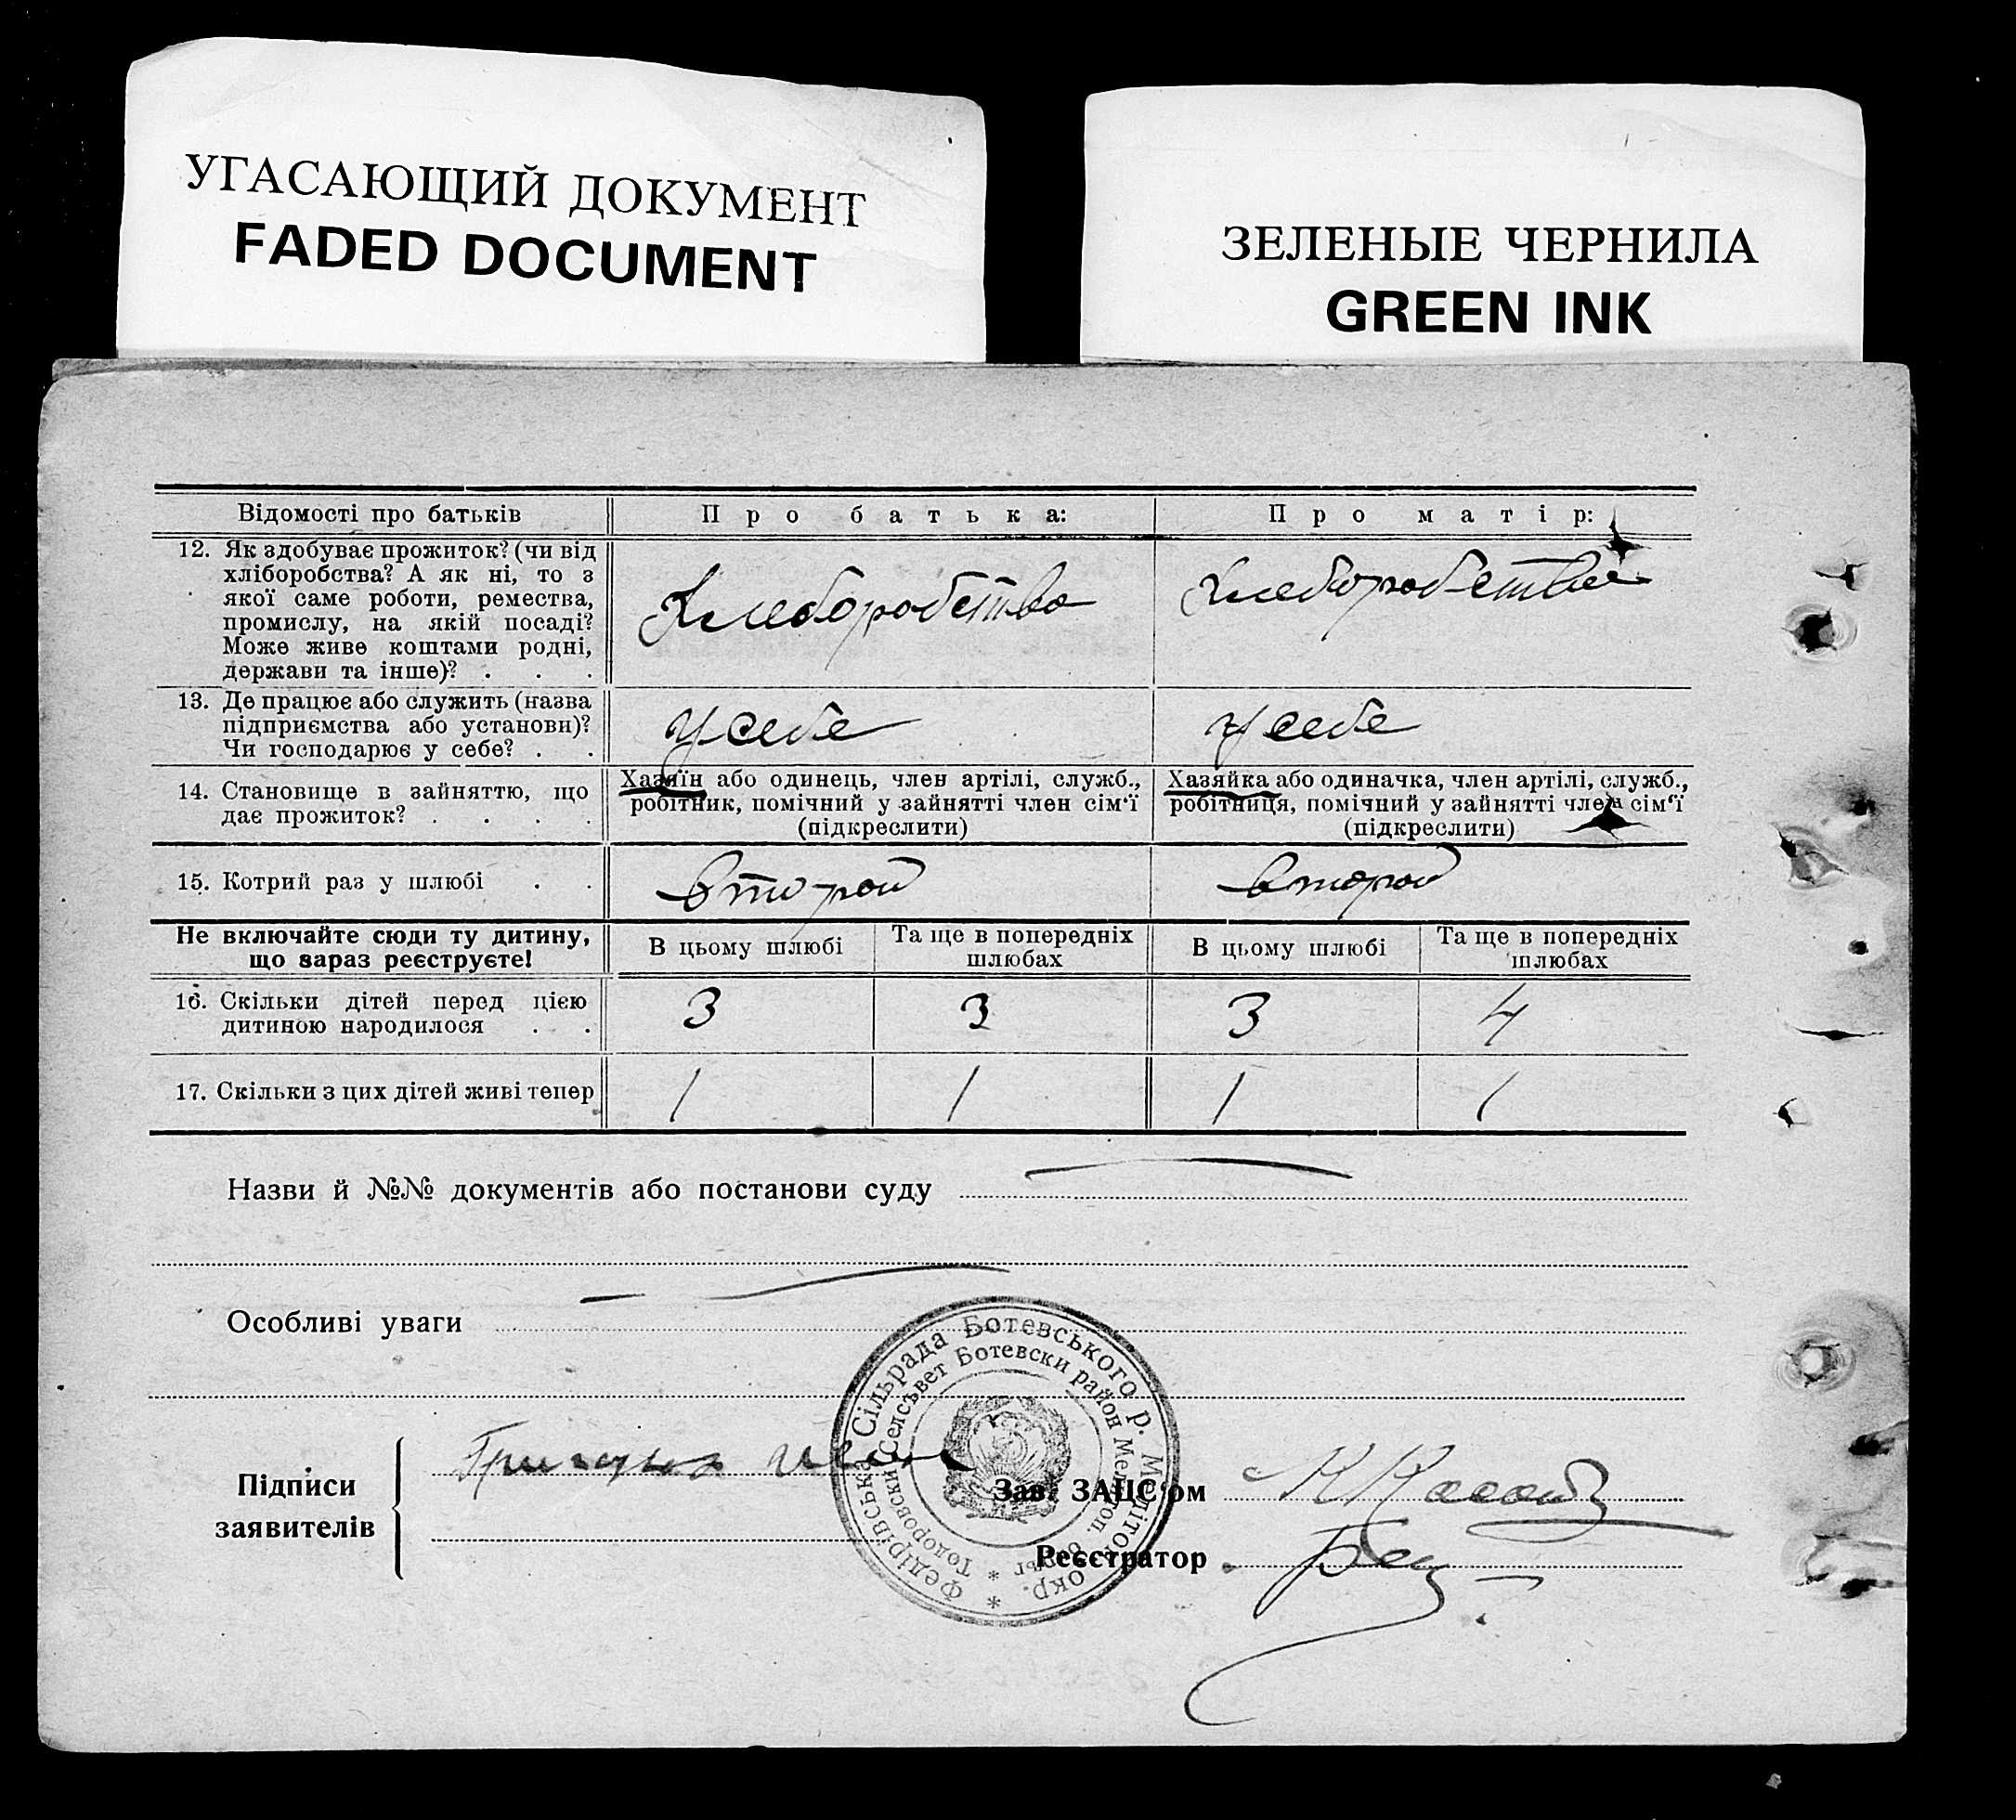 УГАСАЮЩИЙ ДОКУМЕНТ
FADED DOCUMENT
ЗЕЛЕНЫЕ ЧЕРНИЛА
GREEN INK
Відомості про батьків
Про батька:
Про матір:
12. Як здобуває прожиток? (чи від
хліборобства? А як ні, то з
якої саме роботи, ремества,
промислу, на якій посаді?
Може живе коштами родні,
держави та інше)? . . .
Хлеборобство
Хлеборобство
13. Де працює або служить (назва
підприємства або установи)?
Чи господарює у себе? . .
у себе
у себе
14. Становище в зайняттю, що
дає прожиток? . . . .
Хазяїн або одинець, член артілі, служб.,
робітник, помічний у зайнятті член сім'ї
(підкреслити)
Хазяйка або одиначка, член артілі, служб.,
робітниця, помічний у зайнятті член сім'ї
(підкреслити)
15. Котрий раз у шлюбі . .
второй
второй
Не включайте сюди ту дитину,
що зараз реєструєте!
В цьому шлюбі
Та ще в попередніх
шлюбах
В цьому шлюбі
Та ще в попередніх
шлюбах
16. Скільки дітей перед цією
дитиною народилося . .
3
3
3
4
17. Скільки з цих дітей живі тепер
1
1
1
1
Назви й №№ документів або постанови суду
Особливі уваги
Федірівська Сільрада Ботевського р. Мелітоп. окр. *
Тодоровски Селсъвет Ботевски район Мелитоп. окръг *
Підписи
заявителів
Зав. ЗАЦС'ом
Реєстратор